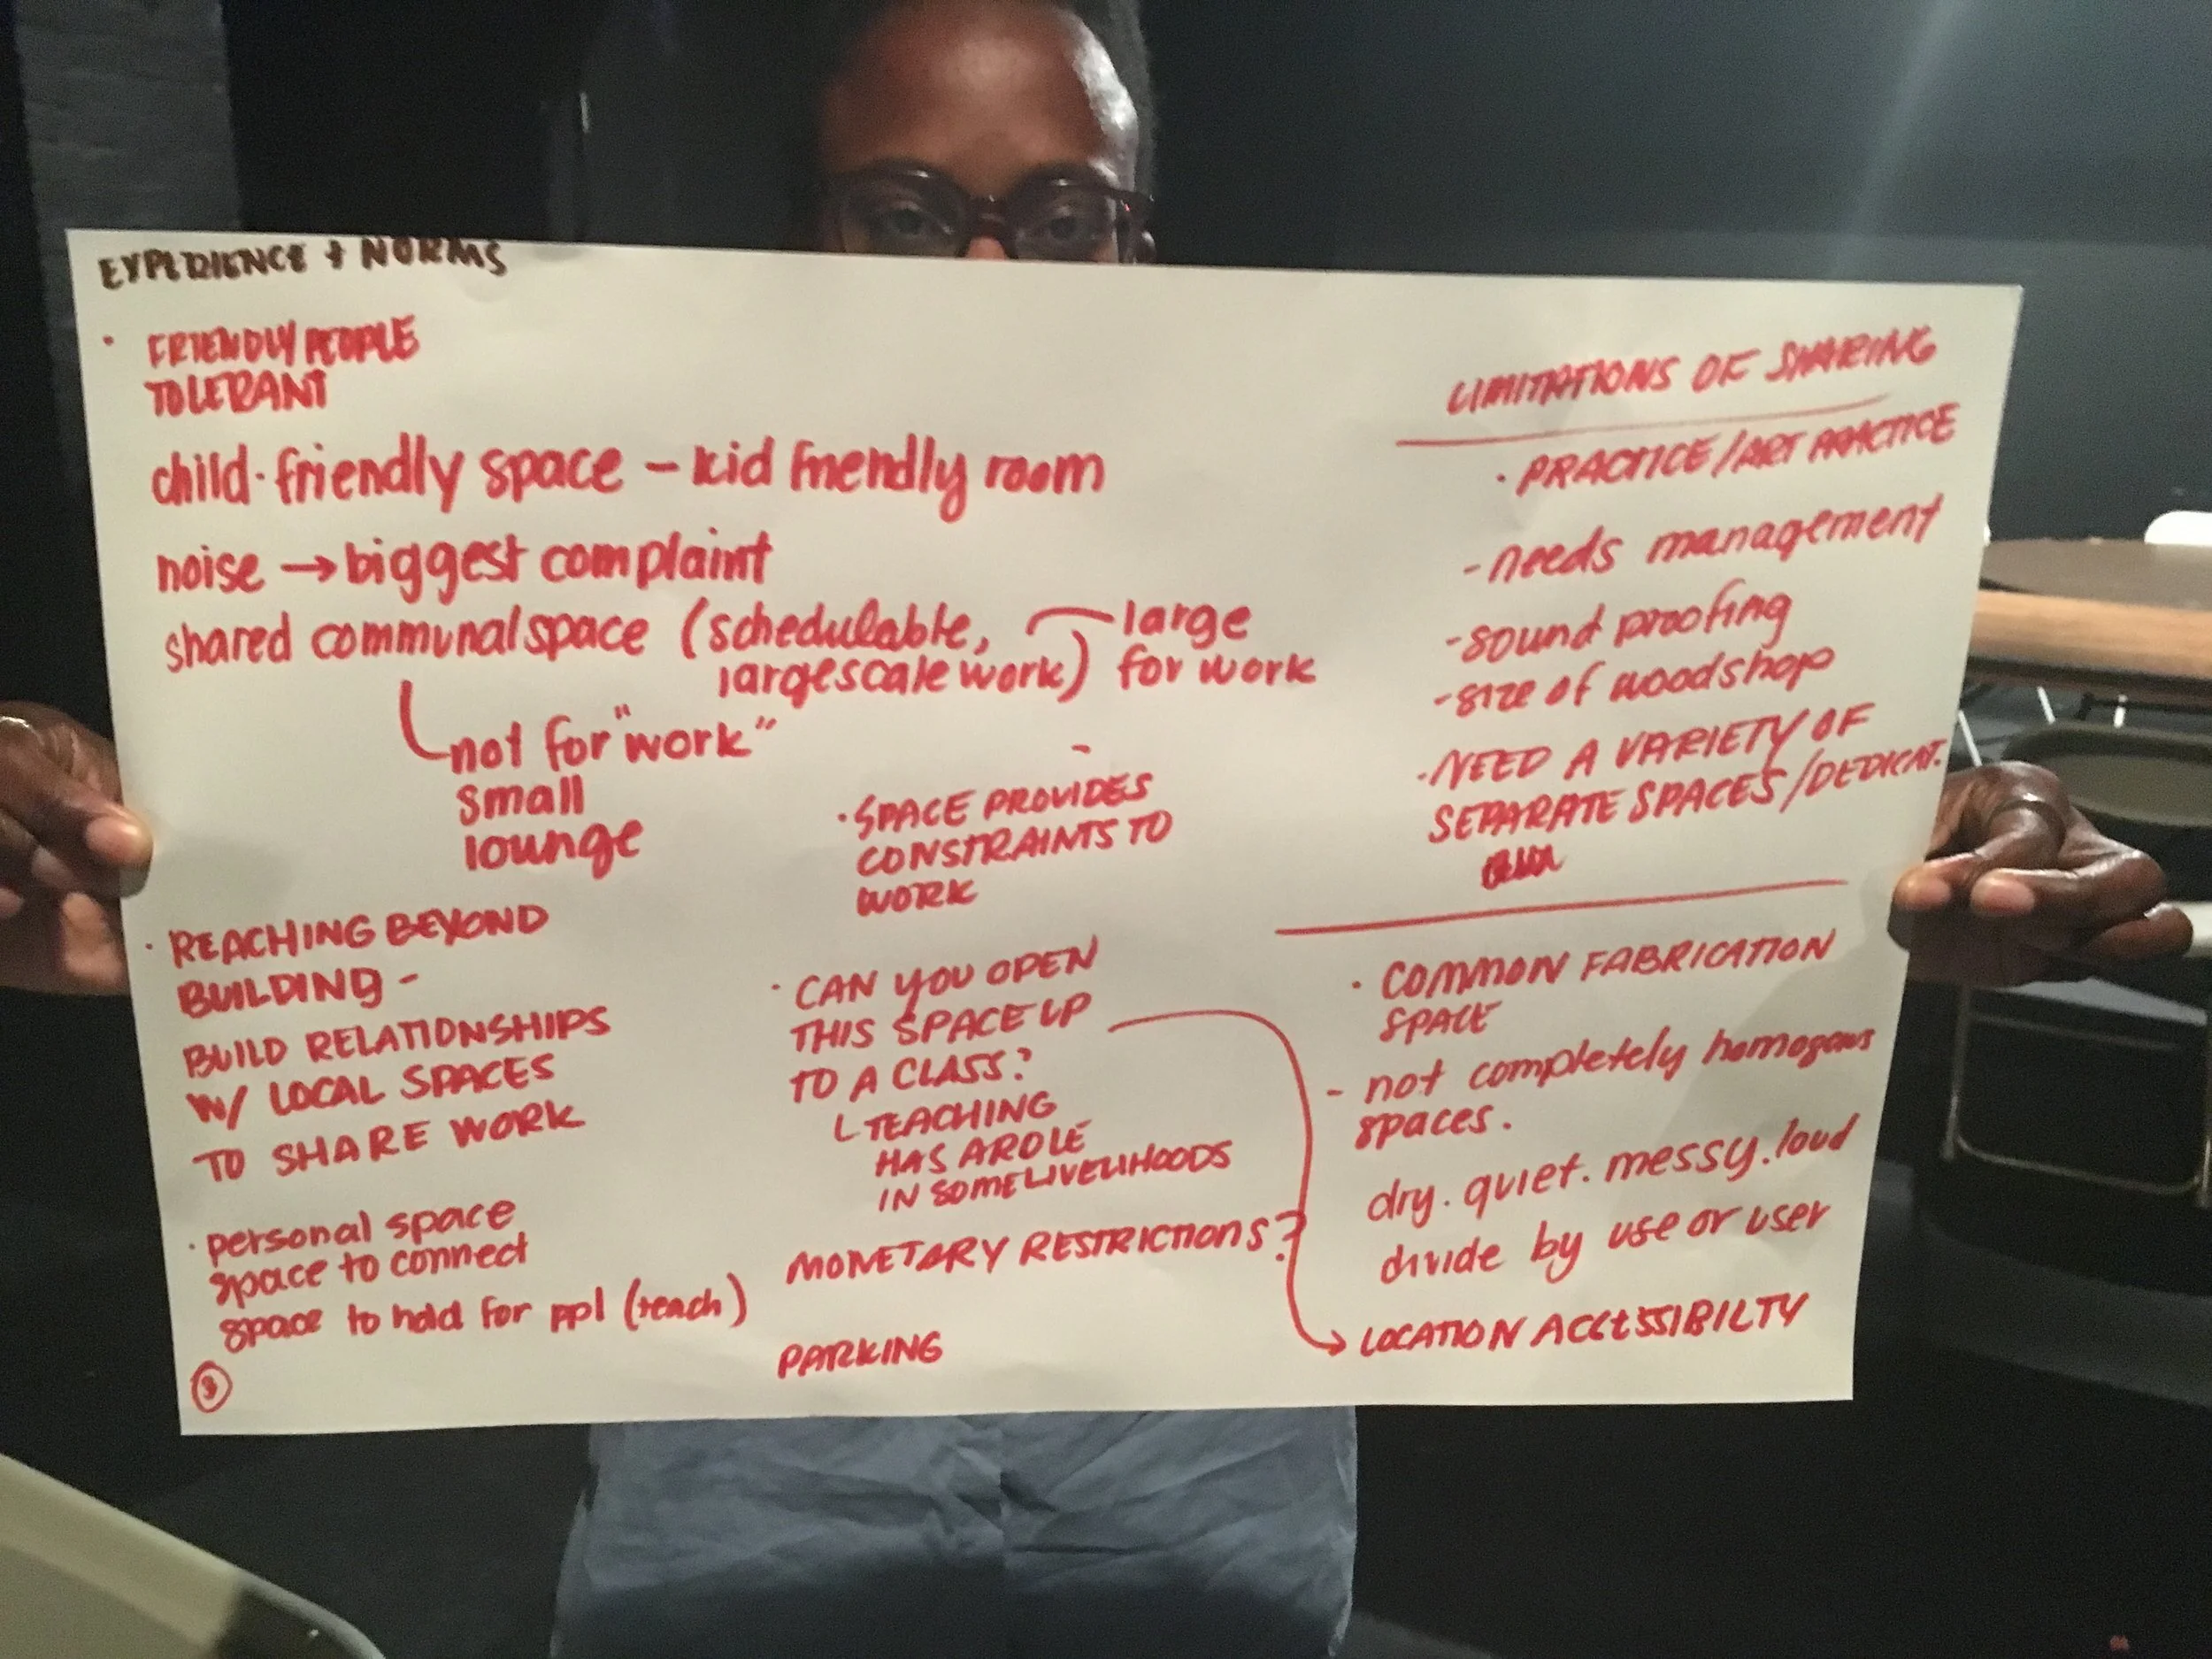 EXPERIENCE + NORMS
· FRIENDLY PEOPLE
TOLERANT
child·friendly space – kid friendly room
noise → biggest complaint
shared communal space (schedulable,
largescale work)
large
for work
not for "work"
small
lounge
· REACHING BEYOND
BUILDING -
BUILD RELATIONSHIPS
W/ LOCAL SPACES
TO SHARE WORK
· personal space
space to connect
space to hold for ppl (teach)
3
· SPACE PROVIDES
CONSTRAINTS TO
WORK
· CAN YOU OPEN
THIS SPACE UP
TO A CLASS?
TEACHING
HAS A ROLE
IN SOME LIVELIHOODS
MONETARY RESTRICTIONS?
PARKING
LIMITATIONS OF SHARING
· PRACTICE/ART PRACTICE
- needs management
- sound proofing
- size of woodshop
· NEED A VARIETY OF
SEPARATE SPACES/DEDICAT.
· COMMON FABRICATION
SPACE
- not completely homogous
spaces.
dry. quiet. messy. loud
divide by use or user
→ LOCATION ACCESSIBILTY